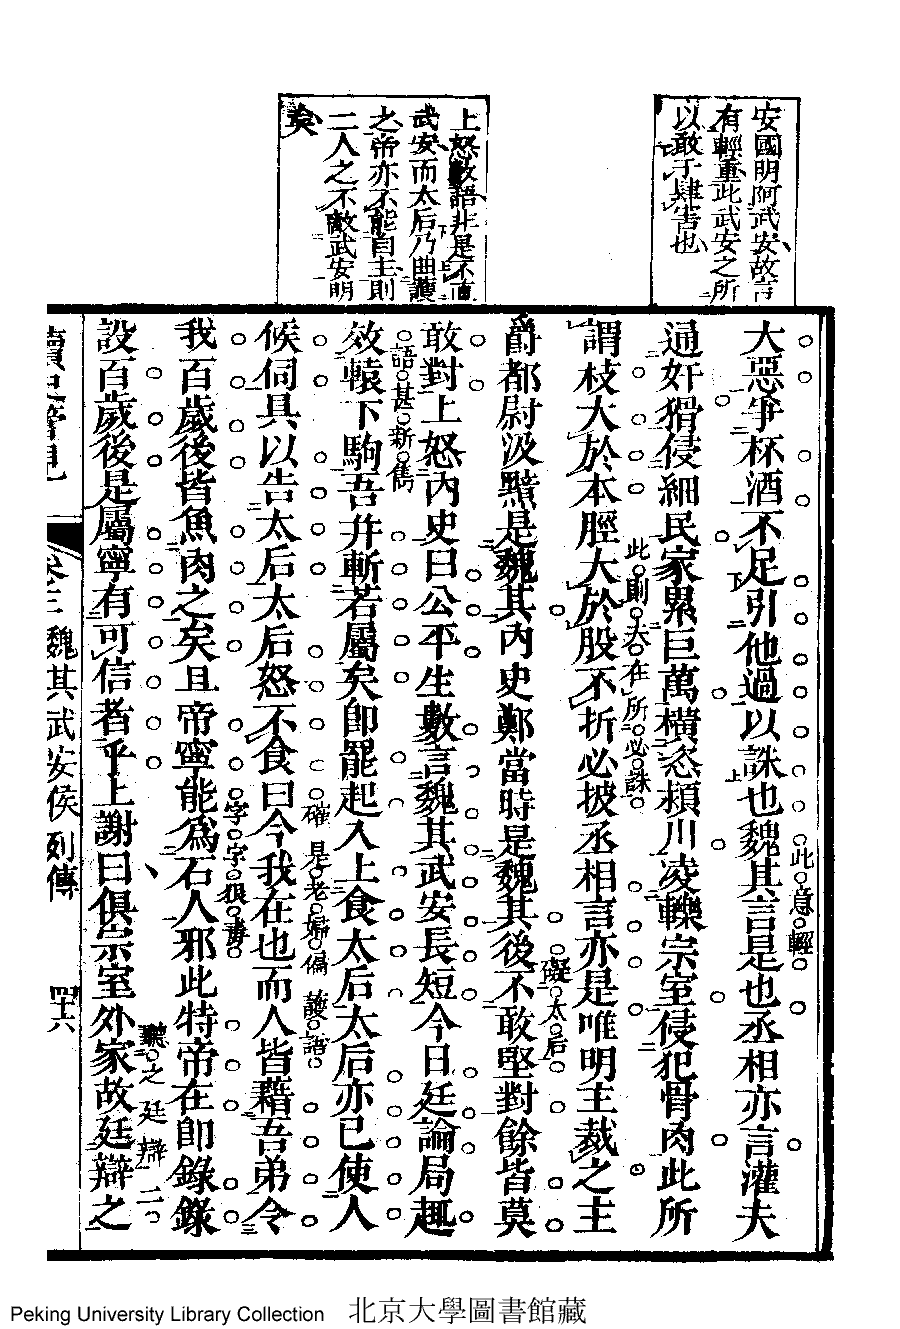 安國明阿武安故言
有輕重此武安之所
以敢于肆害也
上怒數語非是不直
武安而太后乃曲護
之帝亦不能自主則
二人之不敵武安明
矣
大惡爭杯酒不足引他過以誅也魏其言是也丞相亦言灌夫
此意輕
通奸猾侵細民家累巨萬橫恣潁川凌轢宗室侵犯骨肉此所
此則夫在所必誅
謂枝大於本脛大於股不折必披丞相言亦是唯明主裁之主
礙太后
爵都尉汲黯是魏其內史鄭當時是魏其後不敢堅對餘皆莫
敢對上怒內史曰公平生數言魏其武安長短今日廷論局趣
語甚新雋
效轅下駒吾并斬若屬矣即罷起入上食太后太后亦已使人
確是老嫗偏護語
候伺具以告太后太后怒不食曰今我在也而人皆藉吾弟令
字字狠毒
我百歲後皆魚肉之矣且帝寧能為石人邪此特帝在即錄錄
聽之廷辯二
設百歲後是屬寧有可信者乎上謝曰俱宗室外家故廷辯之
讀史管見
卷三 魏其武安侯列傳
四十六
Peking University Library Collection 北京大學圖書館藏